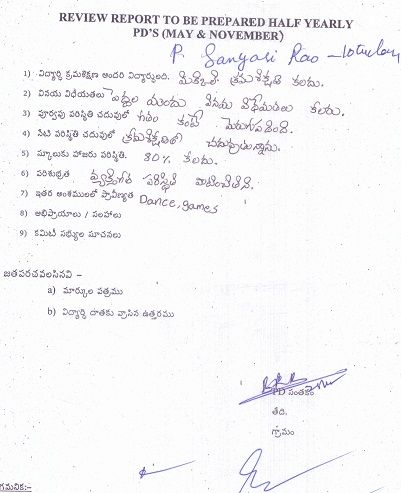 REVIEW REPORT TO BE PREPARED HALF YEARLY
PD'S (MAY & NOVEMBER)
P. Sanyasi Rao -
1) విద్యార్థి క్రమశిక్షణ అందరి విద్యార్థులందు. మిక్కిలి క్రమశిక్షణ కలదు.
2) వినయ విధేయతలు పెద్దల యందు వినయ విధేయతలు కలరు.
3) పూర్వపు పరిస్థితి చదువులో గతం కంటే మెరుగుపడింది.
4) నేటి పరిస్థితి చదువులో క్రమశిక్షణతో చదువుతున్నాడు.
5) స్కూలుకు హాజరు పరిస్థితి. 80% కలదు.
6) పరిశుభ్రత వ్యక్తిగత పరిస్థితి
7) ఇతర అంశములలో ప్రావీణ్యత Dance, games
8) అభిప్రాయాలు / సలహాలు
9) కమిటీ సభ్యుల సూచనలు
జతపరచవలసినవి –
a) మార్కుల పత్రము
b) విద్యార్థి దాతకు వ్రాసిన ఉత్తరము
PD సంతకం
తేది.
గ్రామం
గమనిక:-